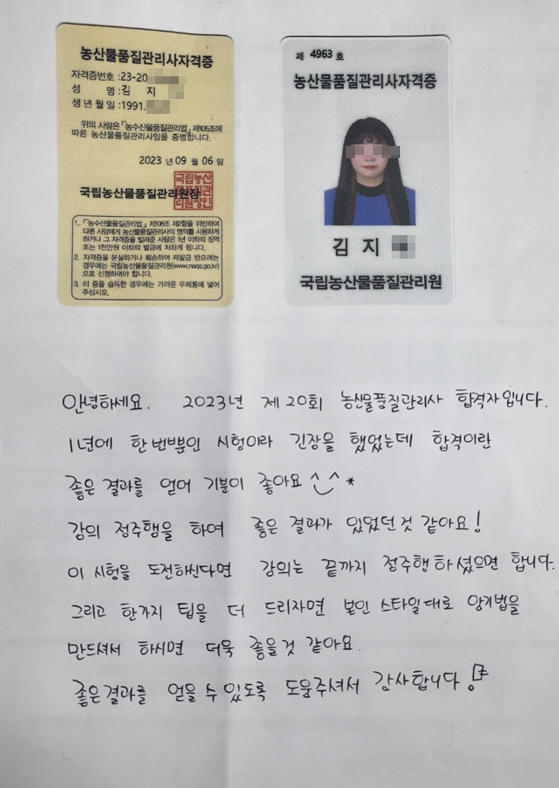 농산물품질관리사자격증
자격증번호 : 23-20
성 명 : 김 지
생년월일 : 1991.
위의 사람은 「농수산물품질관리법」 제105조에
따른 농산물품질관리사임을 증명합니다.
2023 년 09 월 06 일
국립농산물품질관리원장
1. 「농수산물품질관리법」 제108조 제2항을 위반하여
다른 사람에게 농산물품질관리사의 명의를 사용하게
하거나 그 자격증을 빌려준 사람은 1년 이하의 징역
또는 1천만원 이하의 벌금에 처하게 됩니다.
2. 자격증을 분실하거나 훼손하여 재발급 받으려는
경우에는 국립농산물품질관리원(www.naqs.go.kr)
으로 신청하여야 합니다.
3. 이 증을 습득한 경우에는 가까운 우체통에 넣어
주십시오.
제 4963 호
농산물품질관리사자격증
김 지
국립농산물품질관리원
안녕하세요. 2023년 제20회 농산물품질관리사 합격자입니다.
1년에 한번뿐인 시험이라 긴장을 했었는데 합격이란
좋은 결과를 얻어 기분이 좋아요 ^_^*
강의 정주행을 하여 좋은 결과가 있었던것 같아요!
이 시험을 도전하신다면 강의는 끝까지 정주행하셨으면 합니다.
그리고 한가지 팁을 더 드리자면 본인 스타일대로 암기법을
만드셔서 하시면 더욱 좋을것 같아요.
좋은결과를 얻을 수 있도록 도움주셔서 감사합니다!